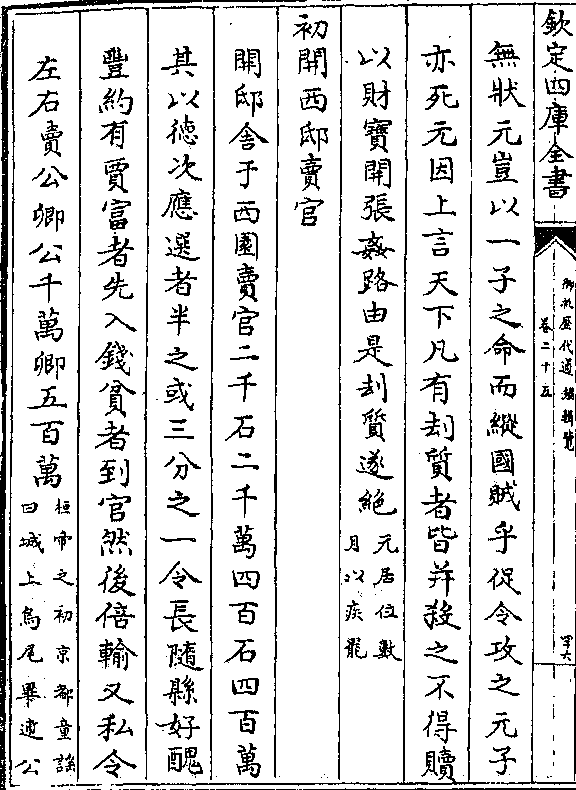 欽定四庫全書
御批歷代通鑑輯覽
卷二十五
四十六
無狀元豈以一子之命而縱國賊乎促令攻之元子
亦死元因上言天下凡有刦質者皆并殺之不得贖
以財寳開張姦路由是刦質遂絶
元居位數
月以疾罷
初開西邸賣官
開邸舍于西園賣官二千石二千萬四百石四百萬
其以徳次應選者半之或三分之一令長隨縣好醜
豐約有賈富者先入錢貧者到官然後倍輸又私令
左右賣公卿公千萬卿五百萬
桓帝之初京都童謡
曰城上烏尾畢逋公